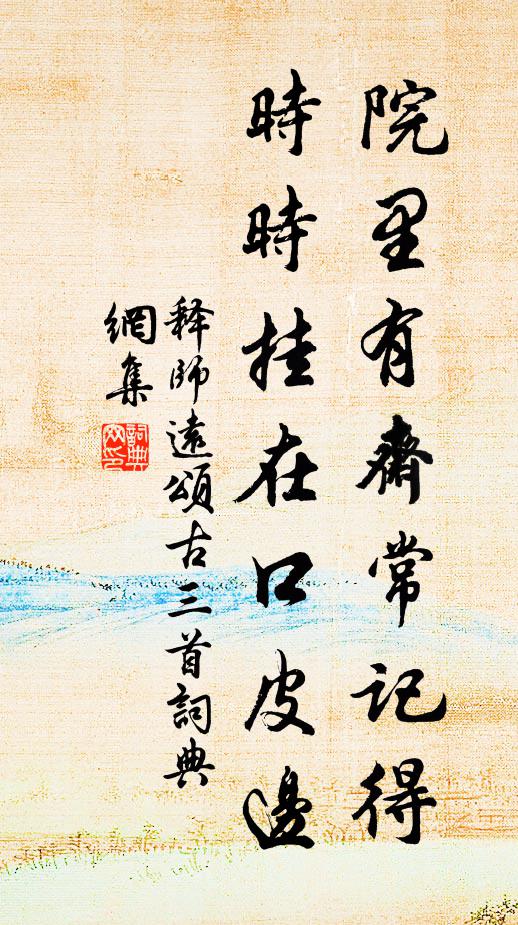 院里有齋常記得
時時挂在口皮邊
释師遠頌古三首詞典
網集
詞典